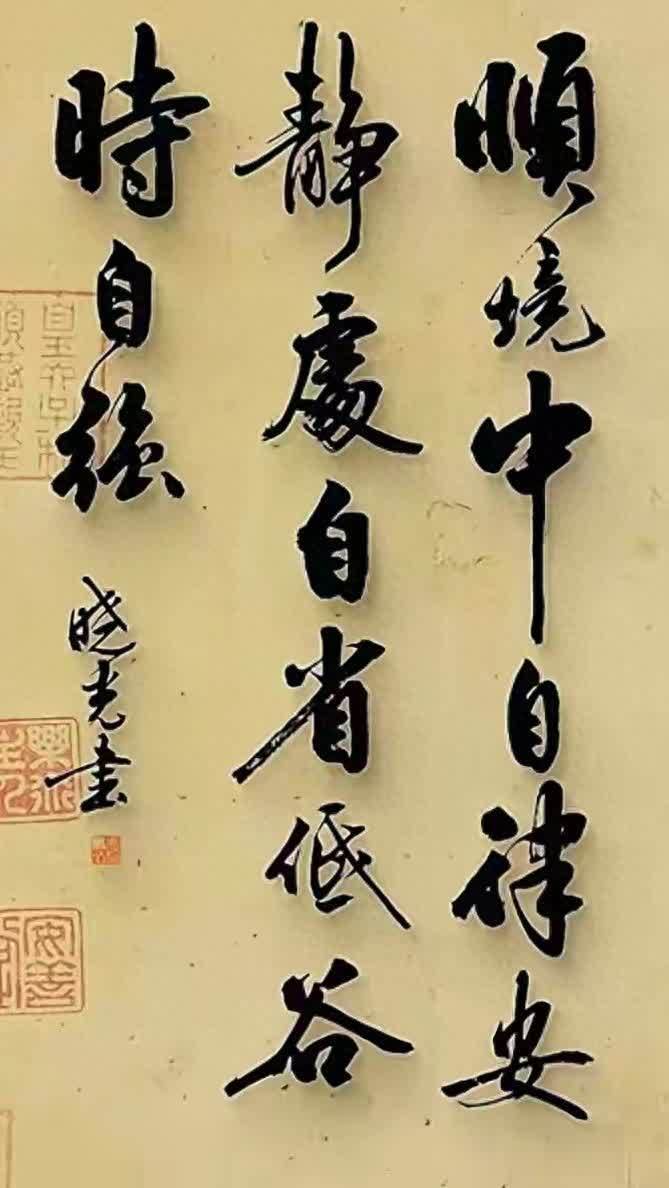 順境中自律安
靜處自省低谷
時自強
晓光書